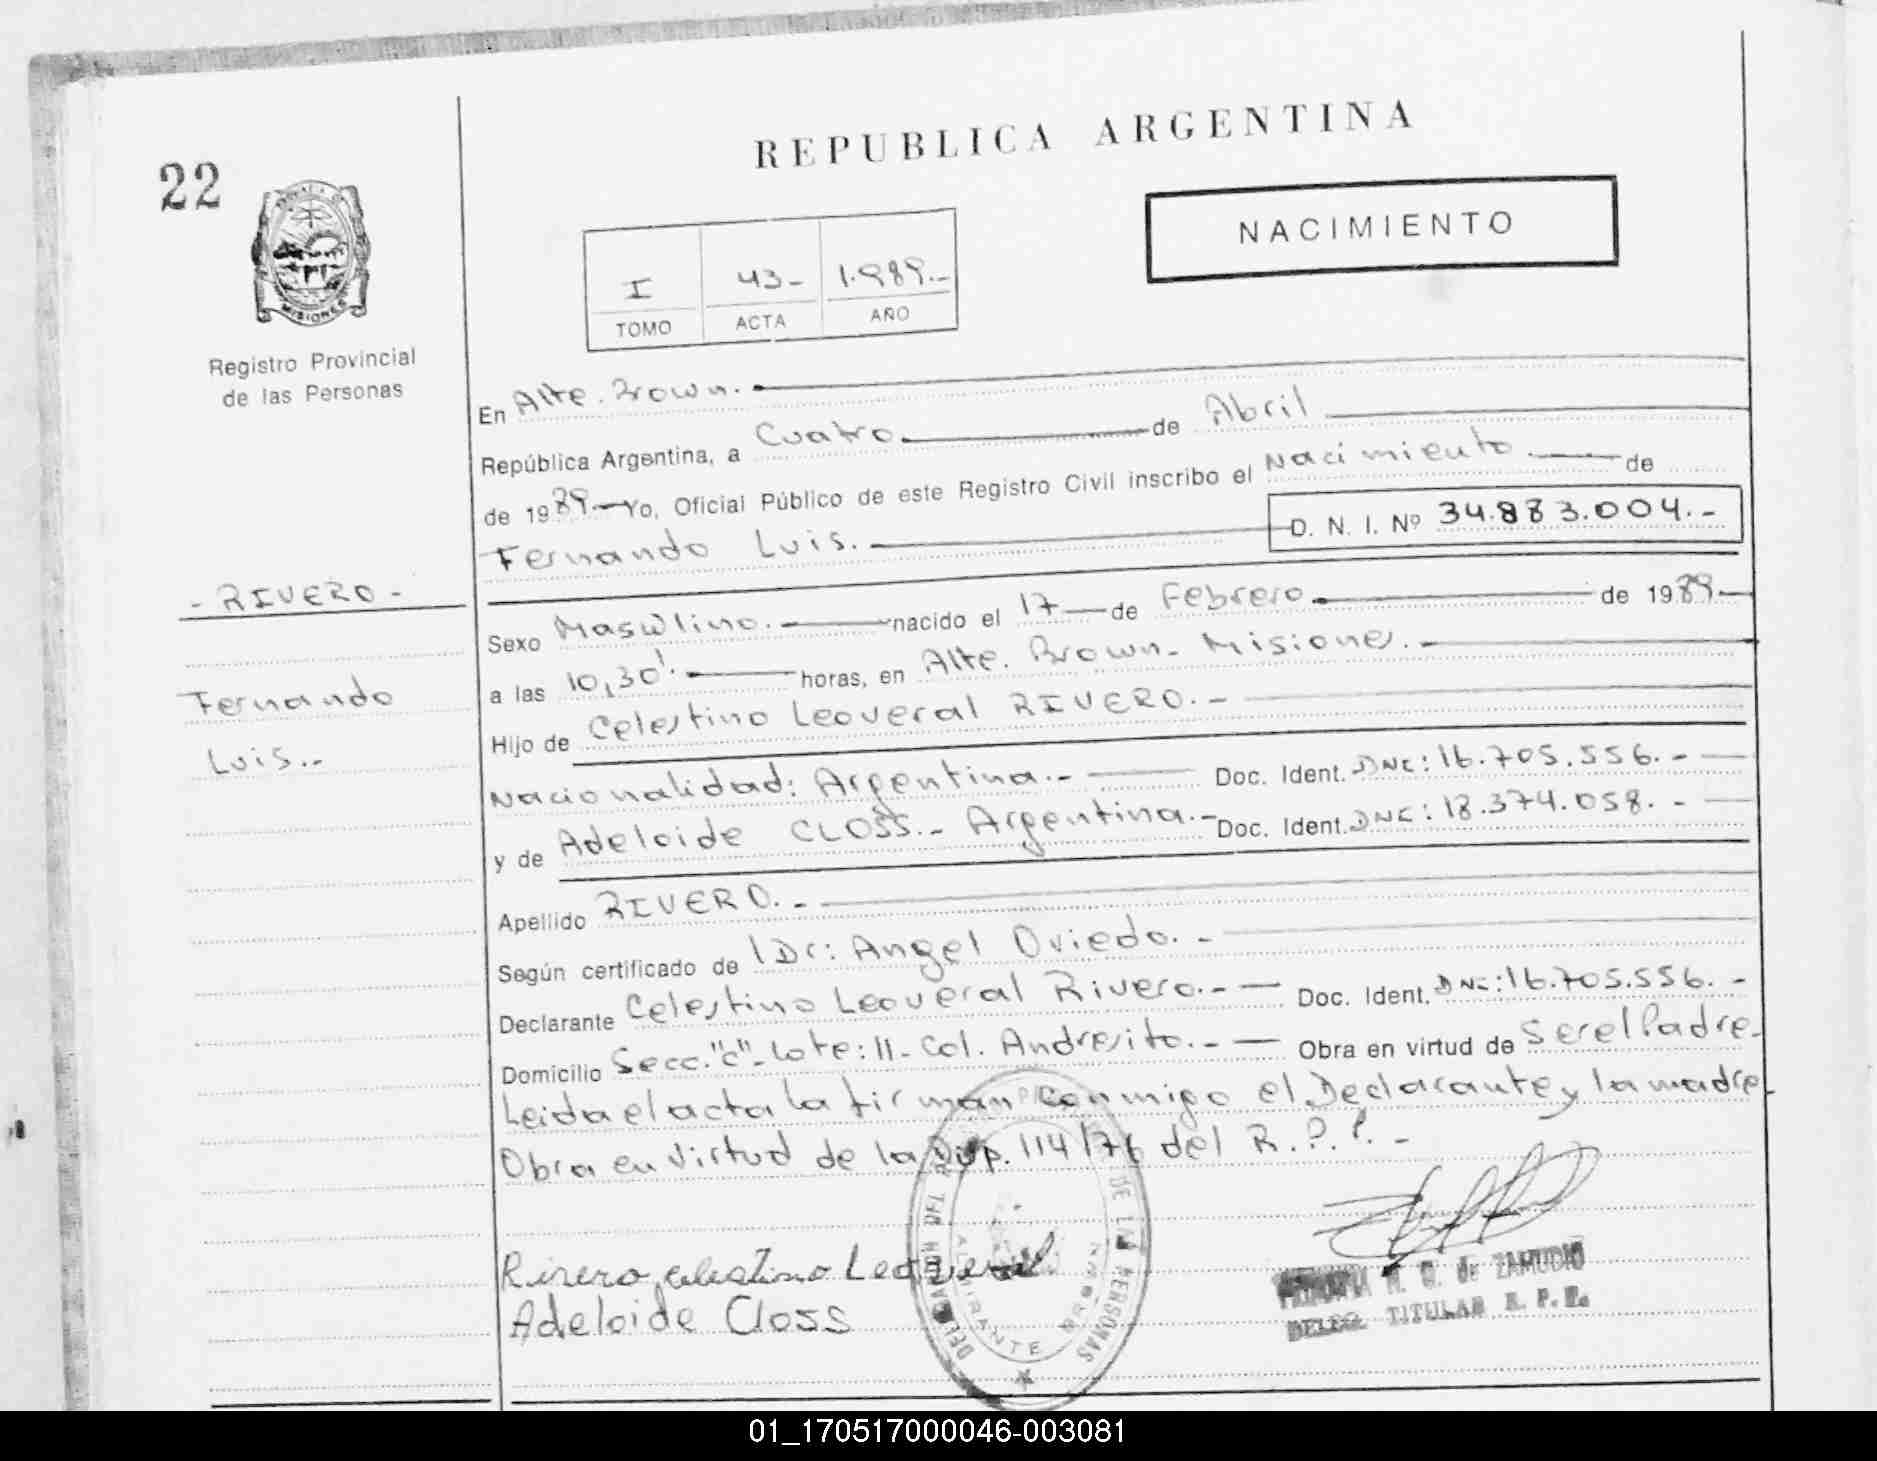 REPUBLICA ARGENTINA
22
NACIMIENTO
I 43- 1.989.-
TOMO ACTA AÑO
MISIONES
Registro Provincial
de las Personas
En Alte. Brown.
República Argentina, a Cuatro de Abril
de 1989 Yo, Oficial Público de este Registro Civil inscribo el Nacimiento. de
Fernando Luis. D. N. I. Nº 34.883.004.-
- RIVERO -
Fernando
Luis.-
Sexo Masculino. nacido el 17 de Febrero de 1989
a las 10,30'. horas, en Alte. Brown- Misiones.
Hijo de Celestino Leoveral RIVERO.-
Nacionalidad: Argentina.- Doc. Ident. DNI: 16.705.556.-
y de Adeloide CLOSS.- Argentina.- Doc. Ident. DNI: 18.374.058.-
Apellido RIVERO.-
Según certificado de Dr: Angel Oviedo.-
Declarante Celestino Leoveral Rivero.- Doc. Ident. DNI: 16.705.556.-
Domicilio Secc. "C"- Lote: 11- Col. Andresito.- Obra en virtud de Ser el Padre.
Leida el acta la firman conmigo el Declarante y la madre.
Obra en Virtud de la Disp. 114/76 del R.P.P.-
Rivero Celestino Leoveral
Adeloide Closs
DE LAS PERSONAS
ALMIRANTE BROWN
M. G. de ZAMUDIO
DELEG. TITULAR R. P. P.
01_170517000046-003081